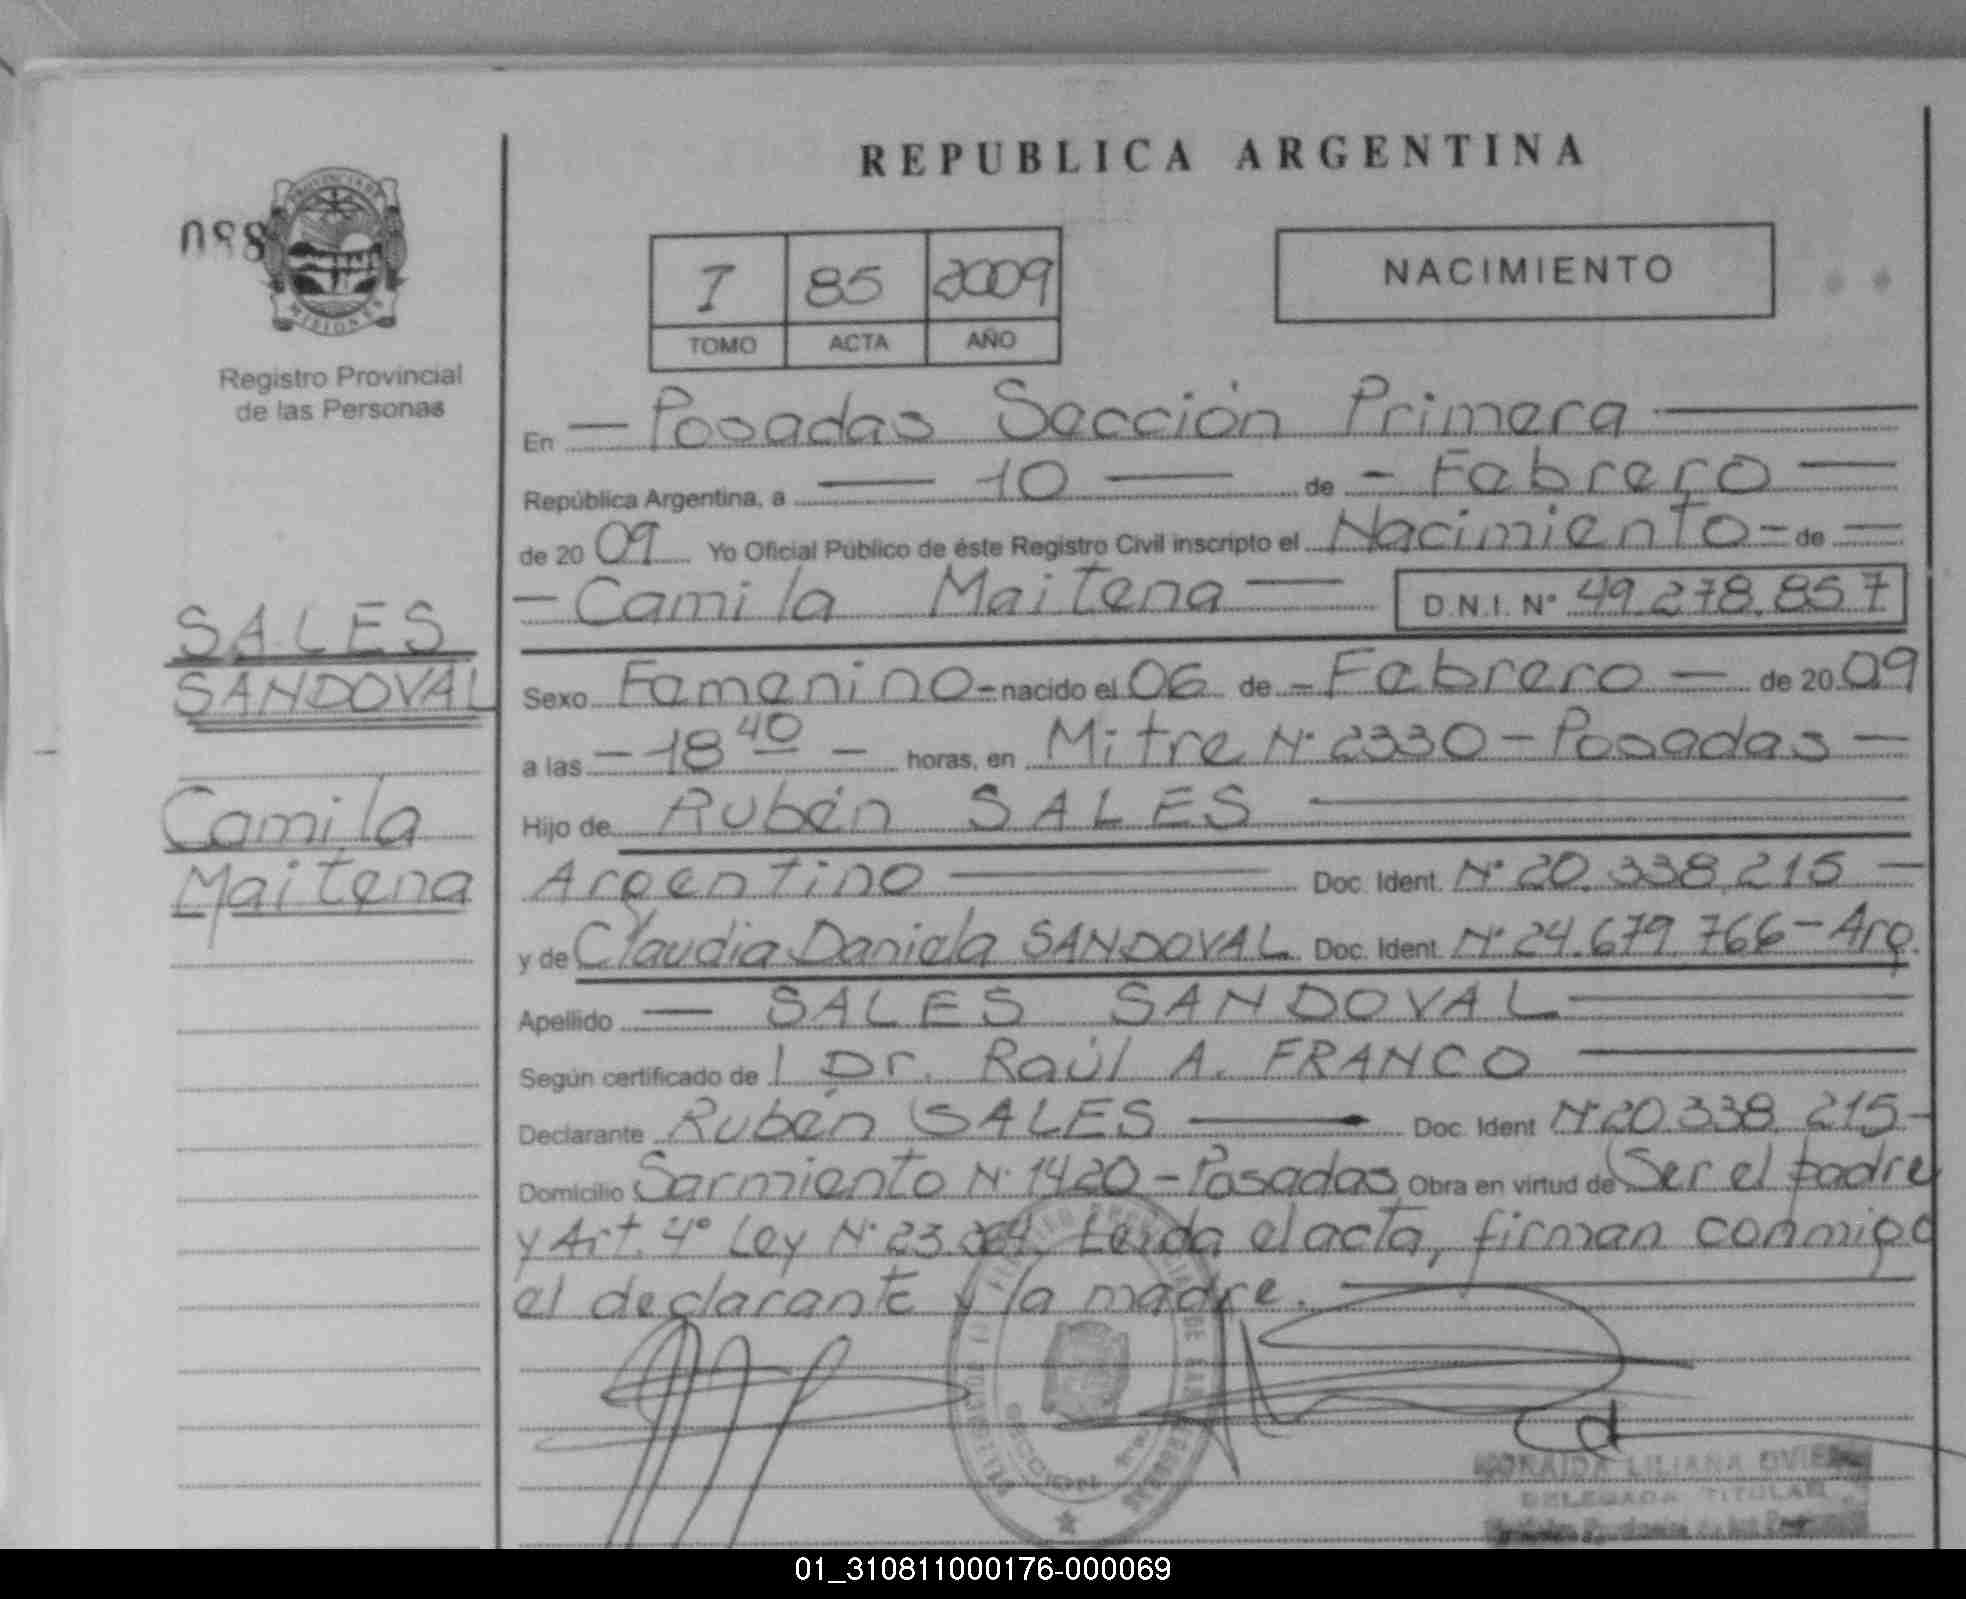 REPUBLICA ARGENTINA
088
PROVINCIA DE
MISIONES
Registro Provincial
de las Personas
I 85 2009
TOMO ACTA AÑO
NACIMIENTO
En - Posadas Sección Primera
República Argentina, a - 10 - de - Febrero -
de 2009 Yo Oficial Público de éste Registro Civil inscripto el Nacimiento - de -
- Camila Maitena - D.N.I. N° 49.278.857
SALES
SANDOVAL
Camila
Maitena
Sexo Femenino - nacido el 06 de - Febrero - de 2009
a las - 18 40 - horas, en Mitre N° 2330 - Posadas -
Hijo de Rubén SALES
Argentino Doc. Ident. N° 20.338.215 -
y de Claudia Daniela SANDOVAL Doc. Ident. N° 24.679.766 - Arg.
Apellido - SALES SANDOVAL
Según certificado de l Dr. Raúl A. FRANCO
Declarante Rubén SALES Doc. Ident N° 20.338.215 -
Domicilio Sarmiento N° 1420 - Posadas Obra en virtud de Ser el padre
y Art. 4° Ley N° 23. Leída el acta, firman conmigo
el declarante y la madre.
LILIANA
DELEGADA TITULAR
01_310811000176-000069